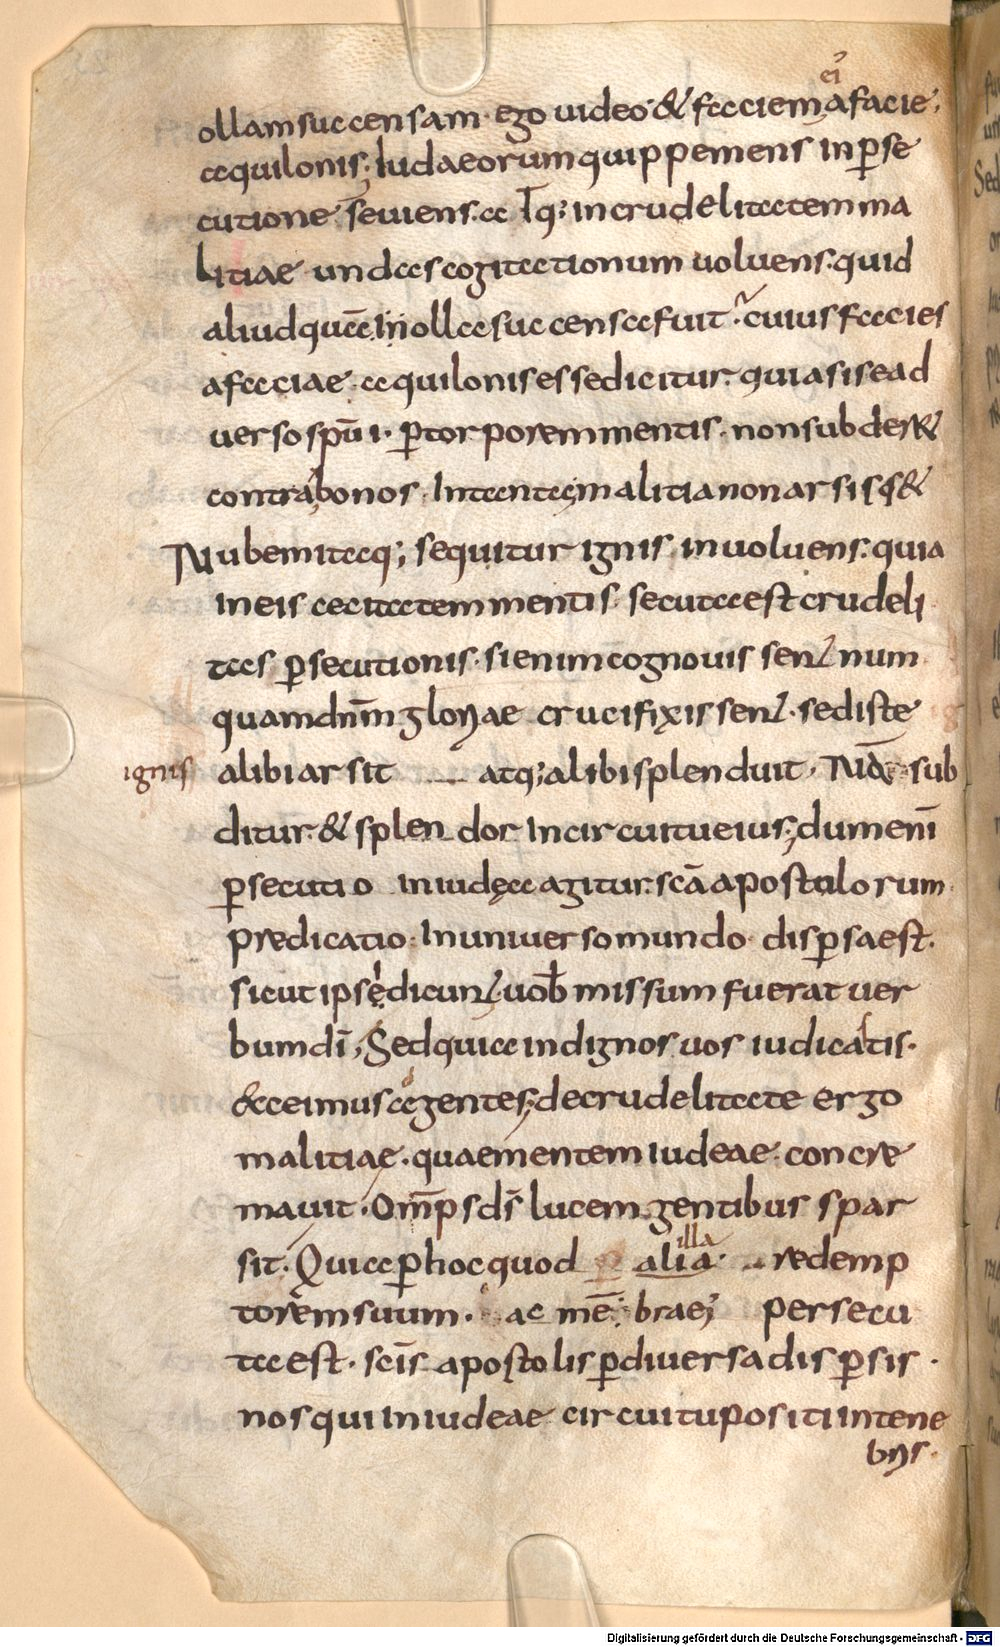 ei
ollam succensam ego uideo & faciem a facie
aquilonis; Iudaeorum quippe mens in p̄se
cutione seuiens. a Tq; in crudelitatem ma
litiae undas cogitationum uoluens. quid
aliud quā In olla succensa fuit. cuius facies
a faciae aquilonis esse dicitur. quia si se ad
uerso sp̄ui. p̄ torporem mentis. non subder&
contra bonos. In tanta malitia non arsiss&
Nubem itaq; sequitur ignis inuoluens. quia
in eis cecitatem mentis. secuta est crudeli
tas p̄secutionis. si enim cognouissent num
quam dnm̄ gloriae crucifixissent. sed iste
ignis alibi arsit atq; alibi splenduit. Nā sub
ditur. & splendor In circuitu eius; dum enī
p̄secutio in iudęa agitur. scā apostolorum
predicatio. In uniuerso mundo disp̄sa est.
sicut ipsę dicunt uob missum fuerat uer
bum dī; Sed quia indignos uos iudicatis.
ecce imus a gentes; de crudelitate ergo
malitiae. quae mentem iudeae concre
mauit. Omp̄s ds̄ lucem gentibus spar
illa
sit. Quia p̄ hoc quod alia. redemp
torem suum. ac mē brae; persecu
ta est. scīs apostolis p̄ diuersa disp̄sis.
nos qui In iudeae circuitu positi in tene
bris.